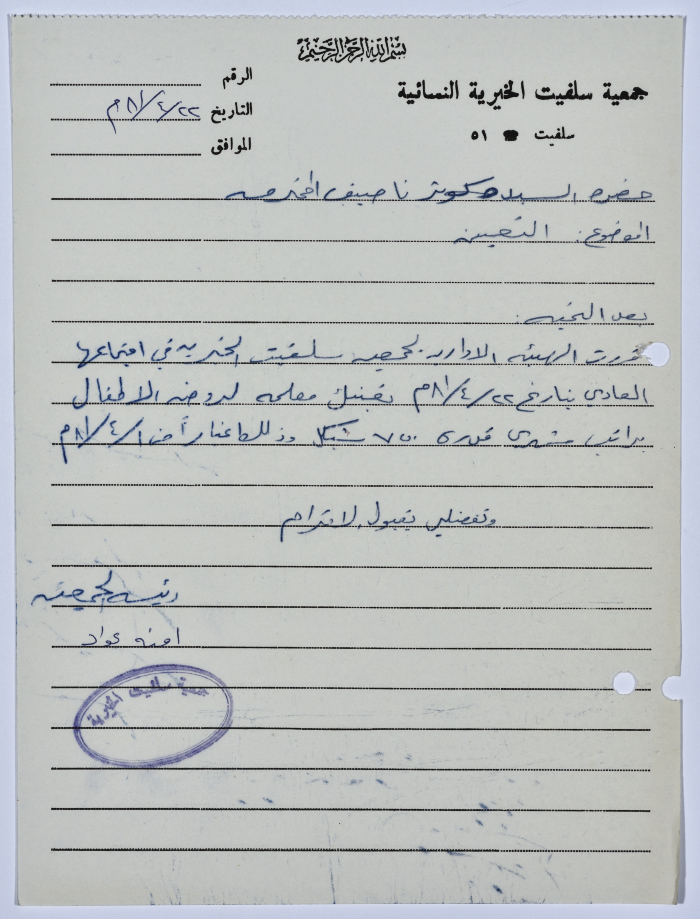 بسم الله الرحمن الرحيم
جمعية سلفيت الخيرية النسائية
سلفيت ☎ ٥١
الرقم
التاريخ ٢٢/٤/٨١م
الموافق
حضرة السيدة كوثر ناصيف المحترمه
الموضوع: التعيين
بعد التحيه:
قررت الهيئه الاداريه لجمعيه سلفيت الخيريه في اجتماعها
العادي بتاريخ ٢٢/٤/٨١م بتعينك معلمه لروضه الاطفال
براتب شهري قدره ٧٥٠ شيكل وذلك اعتباراً من ١/٤/٨١م
وتفضلي بقبول الاحترام
رئيسه الجمعيه
امنه عواد
جمعية سلفيت الخيرية